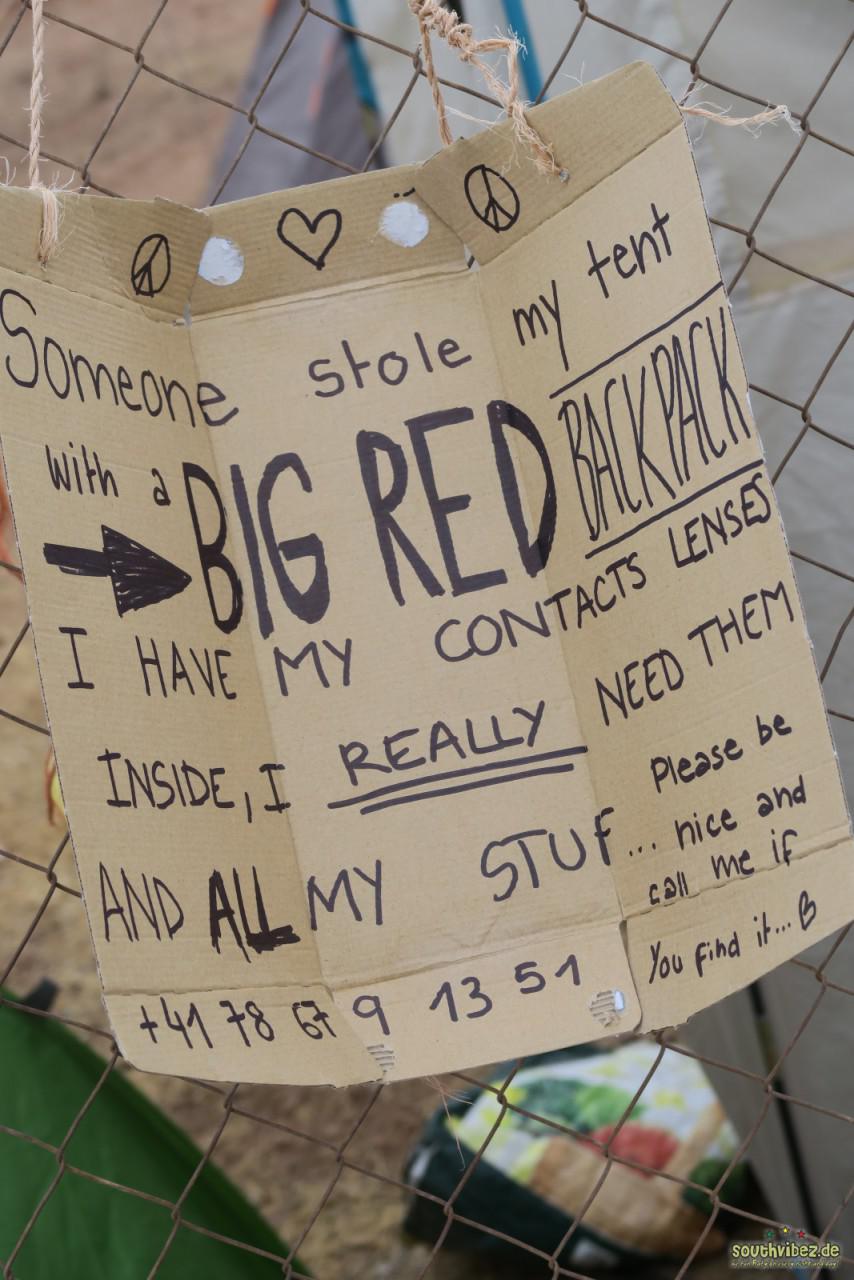 Someone stole my tent
with a BIG RED BACKPACK
I HAVE MY CONTACTS LENSES
INSIDE, I REALLY NEED THEM
AND ALL MY STUF... Please be
nice and
call me if
You find it... B
+41 78 67 9 13 51
southvibez.de